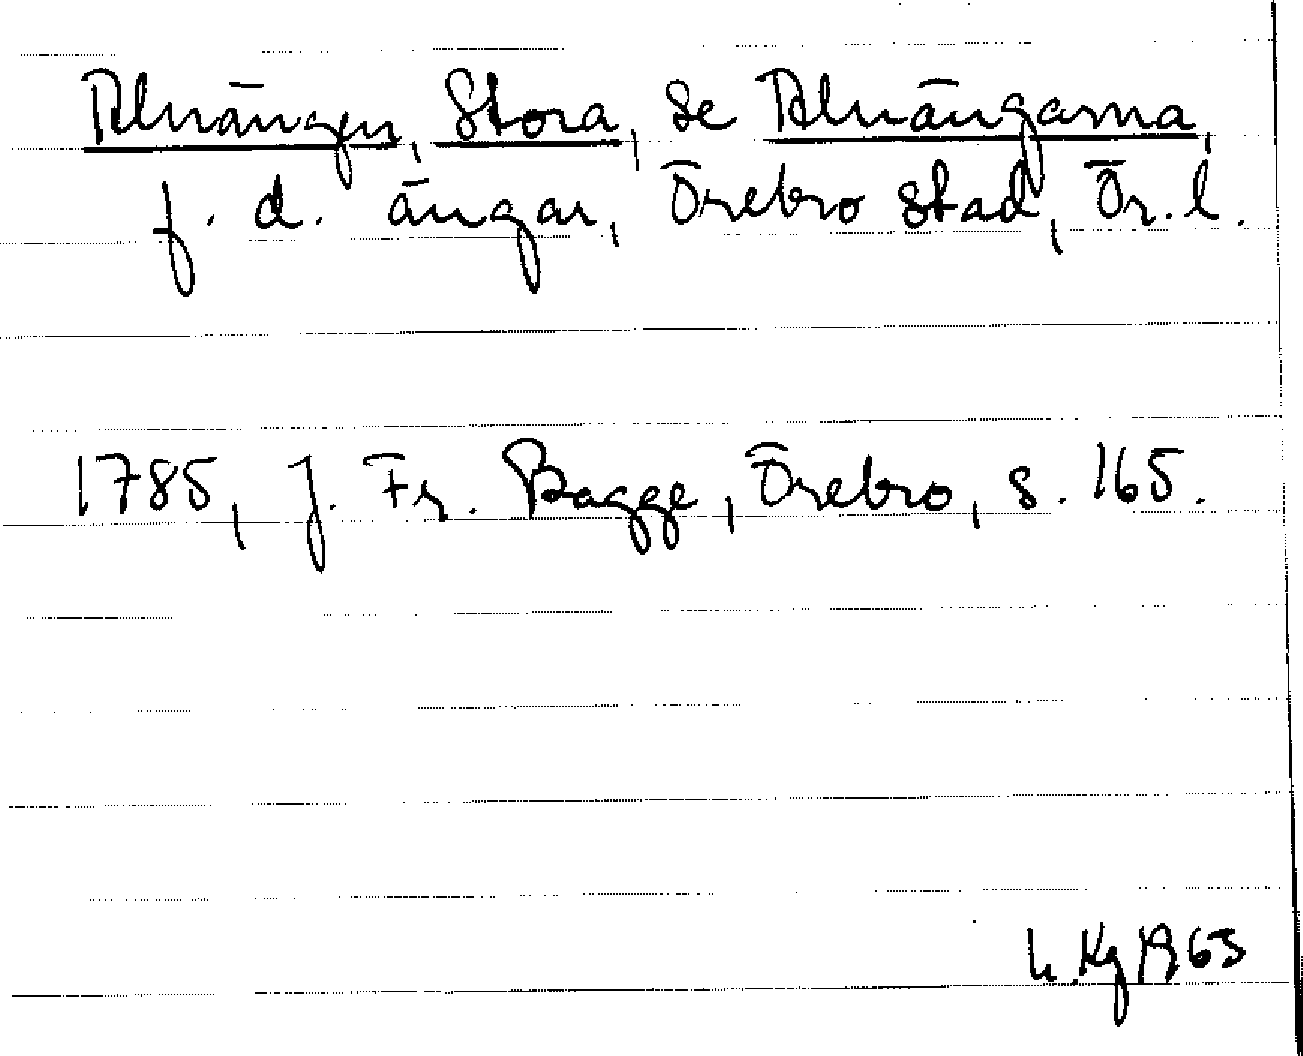 Alnängen, Stora, se Alnängarna,
f. d. ängar, Örebro stad, Ör. l.
1785, J. Fr. Bagge, Örebro, s. 165.
Kg 1963